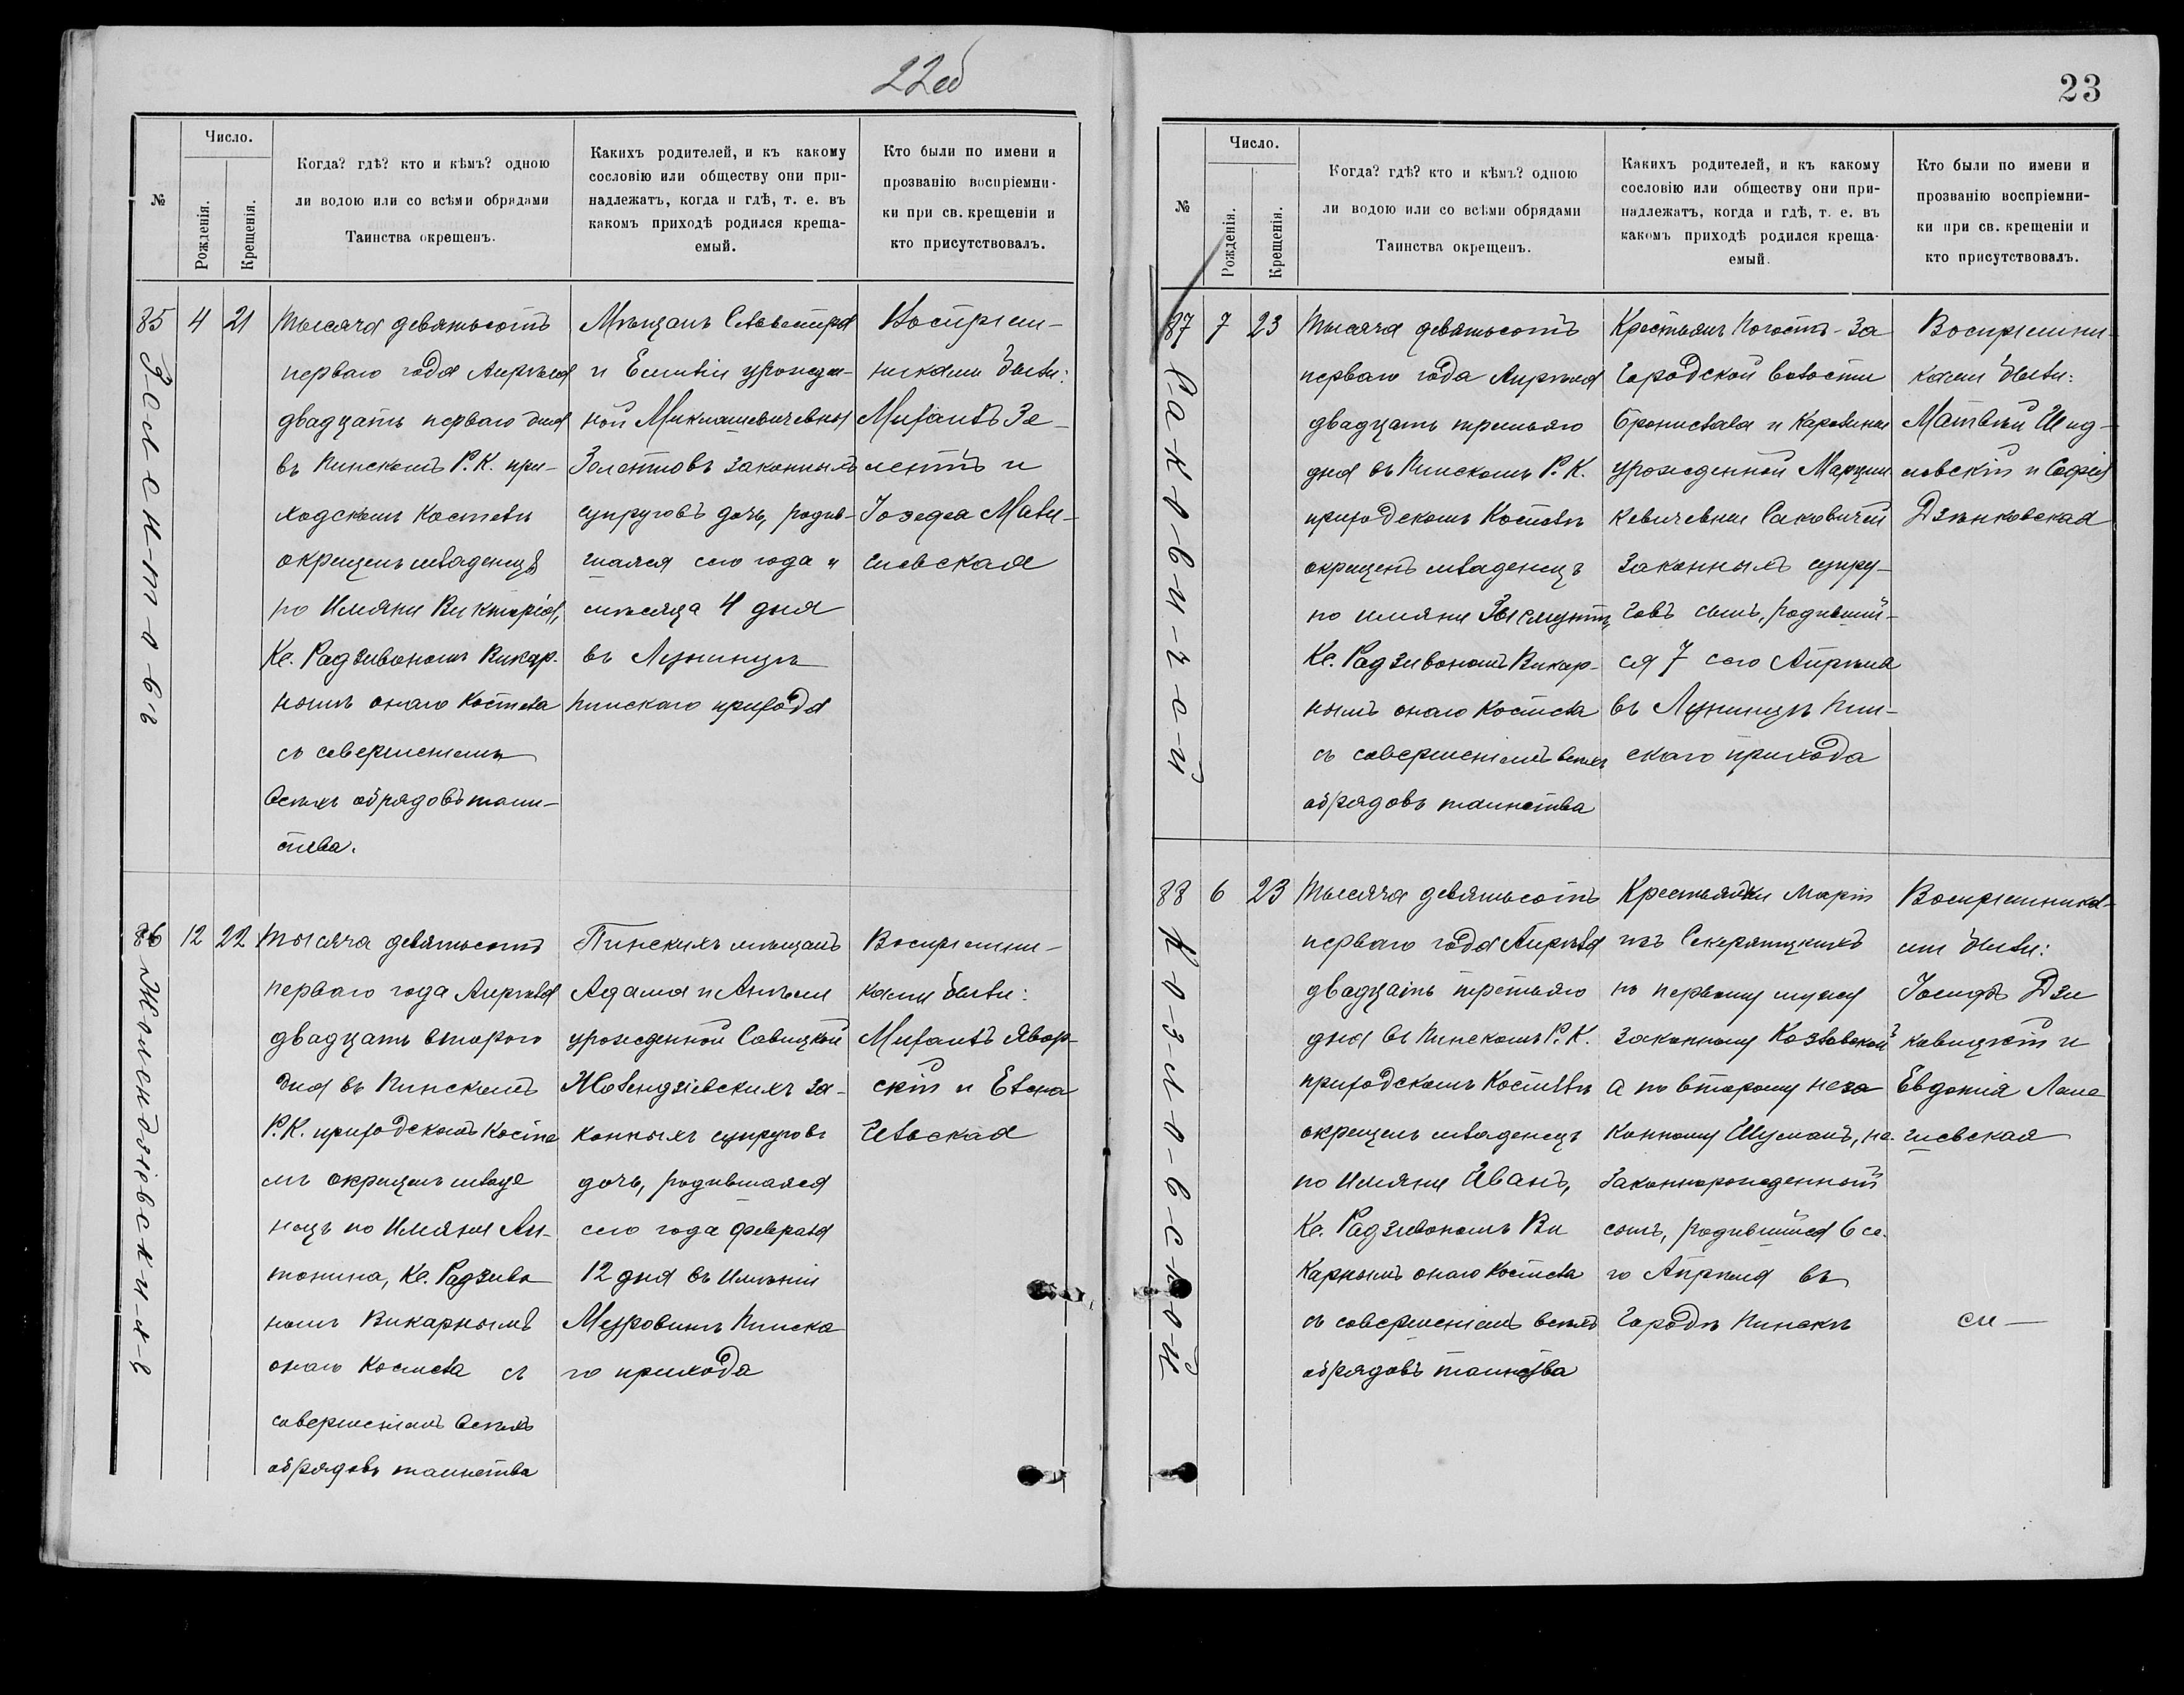 22об
№
Число.
Рожденія.
Крещенія.
Когда? гдѣ? кто и кѣмъ? одною
ли водою или со всѣми обрядами
Таинства окрещенъ.
Какихъ родителей, и къ какому
сословію или обществу они при-
надлежатъ, когда и гдѣ, т. е. въ
какомъ приходѣ родился креща-
емый.
Кто были по имени и
прозванію воспріемни-
ки при св. крещеніи и
кто присутствовалъ.
85
4
21
Тысяча девятьсотъ
перваго года Апрѣля
двадцать перваго дня
въ Пинскомъ Р. К. при-
ходскомъ Костелѣ
окрещенъ младенецъ
по Имяни Викторія,
Кс. Радзивономъ Викар-
нымъ онаго Костела
съ совершеніемъ
всѣхъ обрядовъ таин-
ства.
Мѣщанъ Сильвестра
и Емиліи урожден-
ной Микнашевичевны
Залентовъ законныхъ
супруговъ дочь, родив-
шаяся сего года и
мѣсяца 4 дня
въ Лунинцѣ
Пинскаго прихода
Воспріем-
никами были:
Михаилъ За-
лентъ и
Іозефа Мали-
шевская
86
12
22
Тысяча девятьсотъ
перваго года Апрѣля
двадцать второго
дня въ Пинскомъ
Р. К. приходскомъ Косте
лѣ окрещенъ младе
нецъ по Имяни Ан-
тонина, Кс. Радзиво
номъ Викарнымъ
онаго Костела съ
совершеніемъ всѣхъ
обрядовъ таинства
Пинскихъ мѣщанъ
Адама и Анѣли
урожденной Савицкой
Жолендзіевскихъ за-
конныхъ супруговъ
дочь, родившаяся
сего года февраля
12 дня въ Имѣніи
Пинска
го прихода
Воспріемни-
ками были:
Михаилъ Явор-
скій и Елена
85
87
7
23
Тысяча девятьсотъ
перваго года Апрѣля
двадцать третьяго
дня въ Пинскомъ Р. К.
приходскомъ Костелѣ
окрещенъ младенецъ
по имяни Зыгмунтъ,
Кс. Радзивономъ Викар-
нымъ онаго Костела
съ совершеніемъ всѣхъ
обрядовъ таинства
Крестьянъ Погостъ-За
городской волости
Бронислава и Каролины
урожденной Марцин
кевичевны Саковичей
законныхъ супру-
говъ сынъ, родившій-
ся 7 сего Апрѣля
въ Лунинцѣ Пин-
скаго прихода
Воспріемни-
ками были:
Матвѣй Шид-
ловскій и Софія
Дзѣнковская
23
88
6
23
Тысяча девятьсотъ
перваго года Апрѣля
двадцать третьяго
дня въ Пинскомъ Р. К.
приходскомъ Костелѣ
окрещенъ младенецъ
по Имяни Иванъ,
Кс. Радзивономъ Ви
карнымъ онаго Костела
съ совершеніемъ всѣхъ
обрядовъ таинства
Крестьянки Маріи
изъ Секержицкихъ
по первому мужу
законному Козловской
а по второму неза
конному Шуманъ, не-
законнорожденный
сынъ, родившійся 6 се-
го Апрѣля въ
городѣ Пинскѣ
Воспріемника-
ми были:
Іосифъ Дзи
ковицкій и
Евдокія Лома
шевская